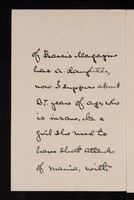 of Frasers Magazine
has a daughter,
now I suppose about
27. years of age, who
is insane. As a
girl she used to
have short attacks
of mania, with